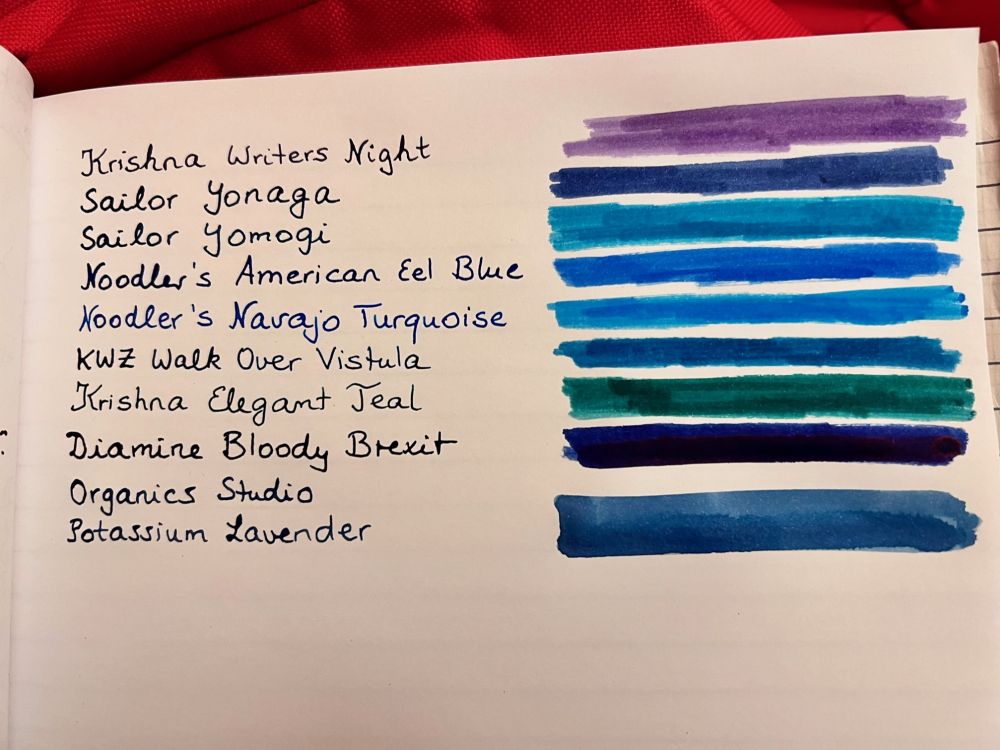 Krishna Writers Night
Sailor Yonaga
Sailor Yomogi
Noodler's American Eel Blue
Noodler's Navajo Turquoise
KWZ Walk Over Vistula
Krishna Elegant Teal
Diamine Bloody Brexit
Organics Studio
Potassium Lavender